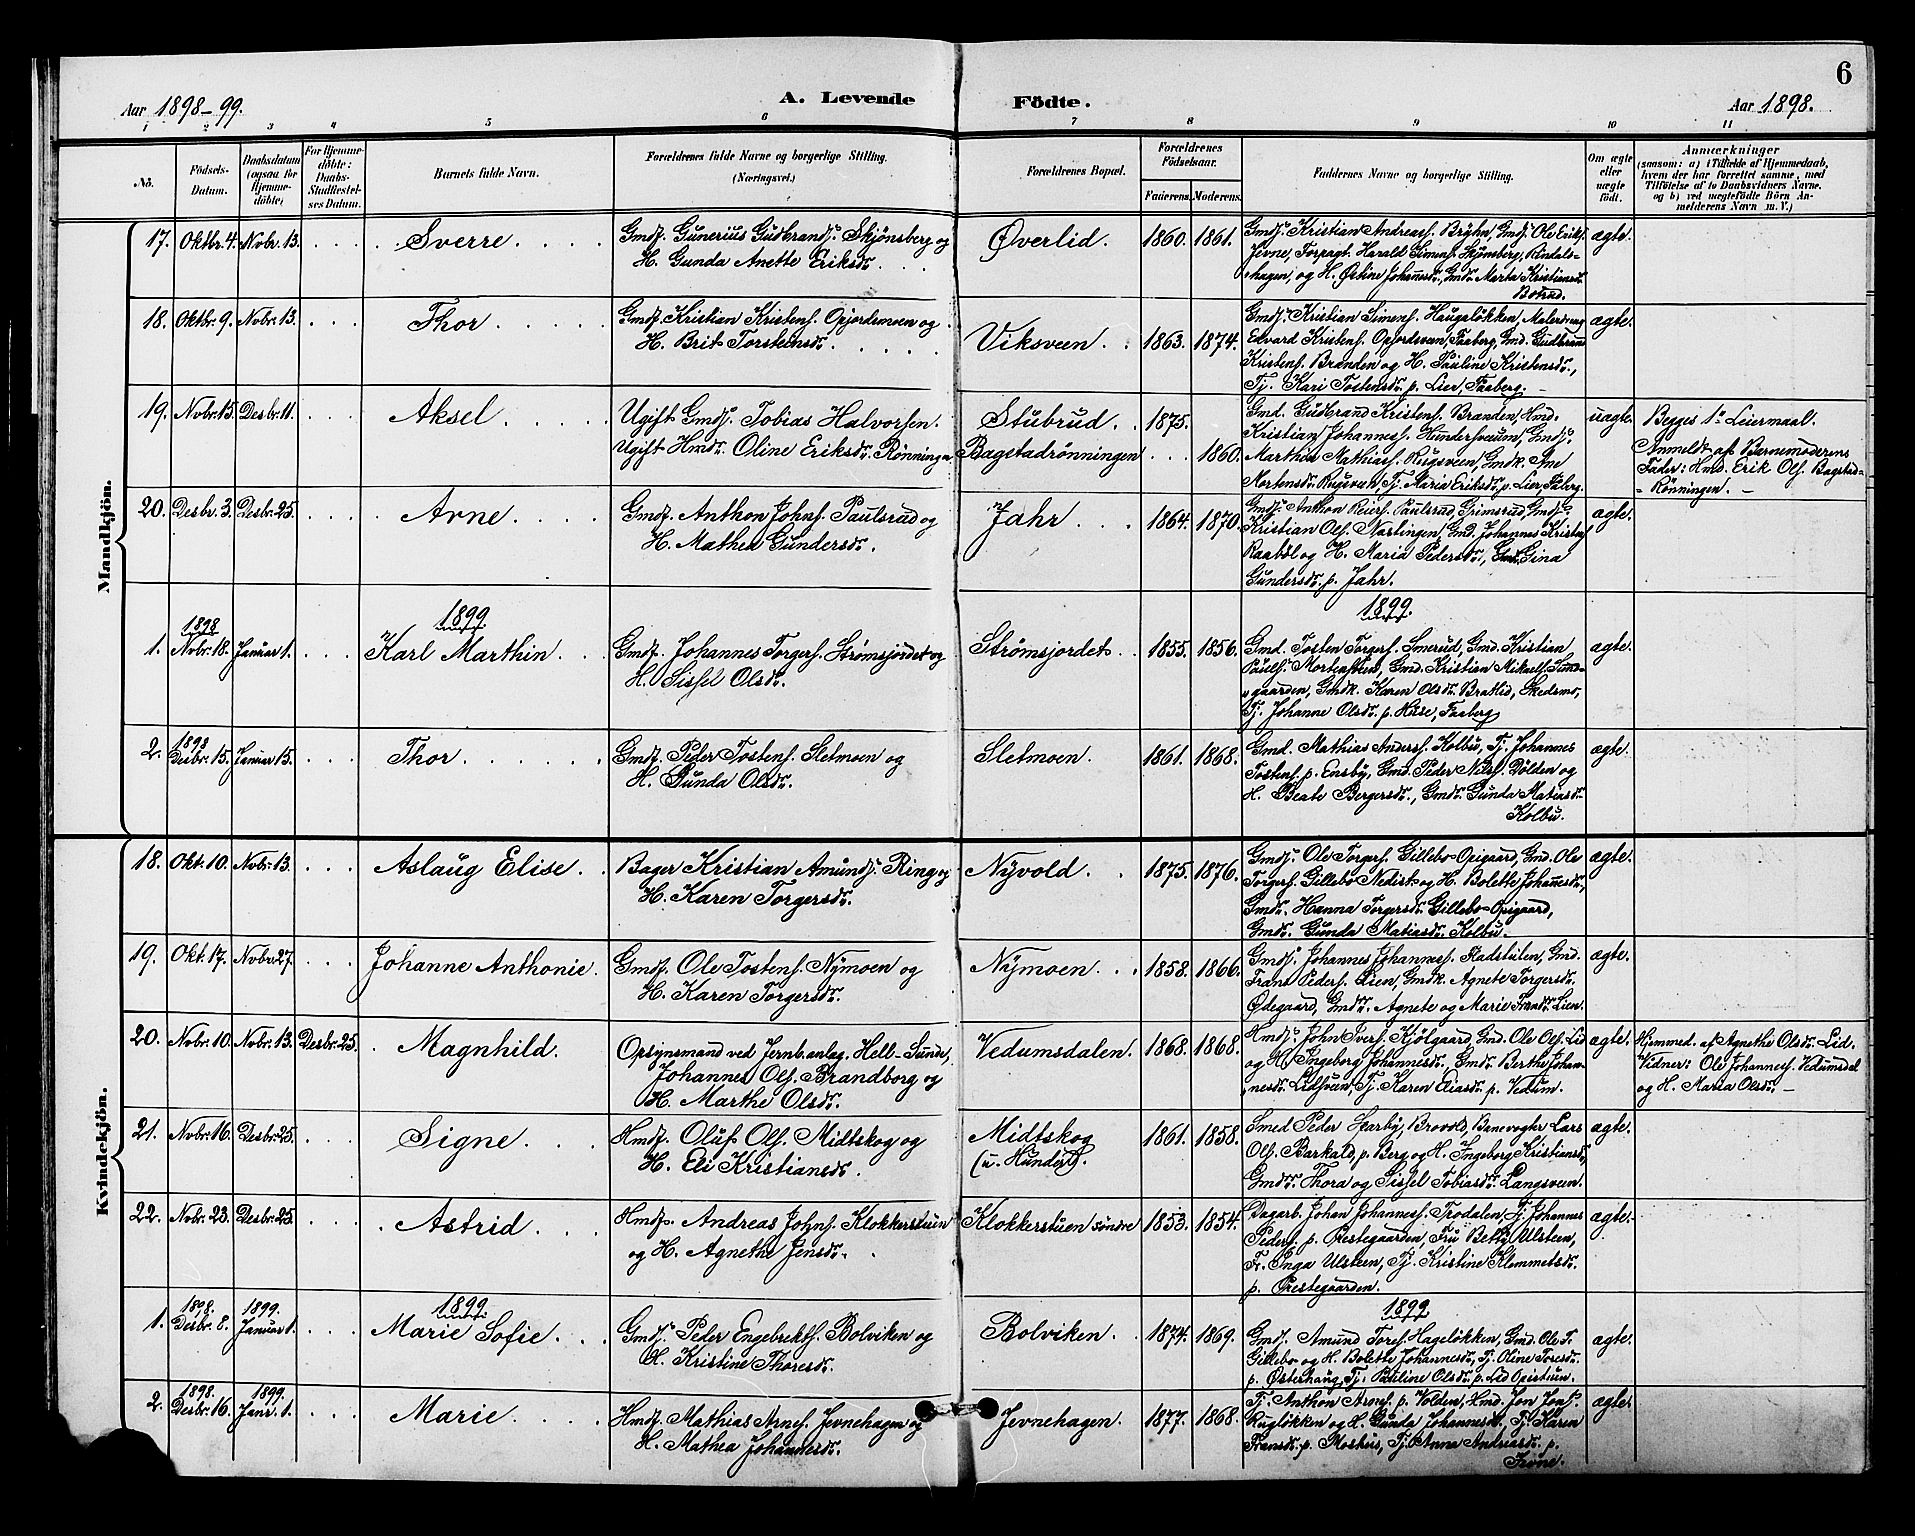 6
Aar 1898-99.
A. Levende
Födte.
Aar 1898.
1 2 3 4 5 6 7 8 9 10 11
No.
Födsels-Datum.
Daabsdatum (ogsaa for Hjemme-döbte)
For Hjemme-döbte: Daabs-Stadfæstel-ses Datum.
Barnets fulde Navn.
Forældrenes fulde Navne og borgerlige Stilling.
(Næringsvei.)
Forældrenes Bopæl.
Forældrenes Födselsaar.
Faderens. Moderens.
Faddernes Navne og borgerlige Stilling.
Om ægte eller uægte födt.
Anmærkninger
(saasom: a) i Tilfælde af Hjemmedaab,
hvem der har forrettet samme, med
Tilföielse af to Daabsvidners Navne.
og b) ved uægtefödte Börn An-
melderens Navn m. V.)
Mandkjön.
17. Oktbr. 4. Novbr. 13. Sverre
Gmdſ. Gunerius Gudbrandſ. Skjønsberg og
H. Gunda Anette Eriksdr.
Øverlid. 1860. 1861.
Gmdſ. Kristian Andreasſ. Bryhn, Gmdſ. Ole Eriks.
Jevne, Forpagt. Harald Simenſ. Skjønsberg, Rindals-
hagen, og H. Østine Johannesdr., Gmdr. Marta Kristiansdr.
Botrud.
ægte.
18. Oktbr. 9. Novbr. 13. Thor
Gmdſ. Kristian Kristenſ. Opjordsmoen og
H. Brit Torsteinsdr.
Viksveen. 1863. 1874.
Gmdſ. Kristian Simenſ. Haugaløkken, Malersveng
Edvard Kristenſ. Opjordsveen, Faaberg, Gmd. Gudbrand
Kristenſ. Branden og H. Pauline Kristensdr.,
Tj. Kari Tostensdr. p. Lier, Faaberg.
ægte.
19. Novbr. 15. Desbr. 11. Aksel
Ugift Gmdſ. Tobias Halvorsen.
Ugift Hmdr. Oline Eriksdr. Rönningen
Stubrud. 1875.
Bagstadrønningen 1860.
Gmd. Gudbrand Kristenſ. Branden, Hmd.
Kristian Johannesſ. Hundersveum, Gmdſ.
Marthin Mathiasſ. Rugsveen, Gmdk. Ane
Mortensdr. Rugsveen, Tj. Maria Eriksdr. p. Lier, Faaberg.
uægte.
Begges 1ste Leiermaal.
Anmeldt af Barnemoderens
Fader: Hmd. Erik Olſ. Bagstad-
Rønningen.
20. Desbr. 3. Desbr. 25. Arne
Gmdſ. Anthon Johnſ. Paulsrud og
H. Mathea Gundersdr.
Jahr 1864. 1870
Gmdſ. Anthon Reierſ. Paulsrud, Grimsrud, Gmdſ.
Kristian Olſ. Nartingen, Gmd. Johannes Kristenſ.
Raabøl og H. Maria Pedersdr., Gmdr. Gina
Gundersdr. p. Jahr.
ægte.
1899 1899.
1. 1898 Novbr. 18. Januar 1. Karl Marthin
Gmdſ. Johannes Torgerſ. Strømsjordet og
H. Sissel Olsdr.
Strømsjordet 1855. 1856.
Gmd. Tosten Torgerſ. Smerud, Gmd. Kristian
Paulſ. Mortenstuen, Gmd. Kristian Mikaelſ. Sund-
gaarden, Gmdk. Karen Olsdr. Bratlid, Skedsmo,
Tj. Johanne Olsdr. p. Hisse, Faaberg
ægte.
2. 1898 Desbr. 15. Januar 15. Thor
Gmdſ. Peder Tostenſ. Sletmoen og
H. Gunda Olsdr.
Sletmoen 1861. 1868.
Gmd. Mathias Andersſ. Kolbu, Tj. Johannes
Tostenſ. p. Ensby, Gmd. Peder Nilsſ. Dölden og
H. Beate Bergersdr., Gmdr. Gunda Matiasdr.
Kolbu.
ægte.
Kvindekjön.
18. Okt. 10. Novbr. 13. Aslaug Elise
Bager Kristian Amundſ. Ring og
H. Karen Torgersdr.
Nyvold 1875. 1876.
Gmdſ. Ole Torgerſ. Gillebo-Opigaard, Gmd. Ole
Torgerſ. Gillebo Nedist og H. Bolette Johannesdr.,
Gmdr. Hanna Torgersdr. Gillebo-Opigaard,
Gmdr. Gunda Matiasdr. Kolbu.
ægte.
19. Okt. 17. Novbr. 27. Johanne Anthonie.
Gmdſ. Ole Tostenſ. Nymoen og
H. Karen Torgersdr.
Nymoen 1858. 1866.
Gmdſ. Johannes Johannesſ. Stadstuen, Gmd.
Frans Pederſ. Lien, Gmdk. Agnete Torgersdr.
Ødegaard, Gmdr. Agnete og Marie Fransdr. Lien.
ægte.
20. Novbr. 10. Novbr. 13. Desbr. 25. Magnhild.
Opsynsmand ved Jernb.anlag. Hell-Sunde,
Johannes Olſ. Brandborg og
H. Marthe Olsdr.
Vedumsdalen. 1868. 1868.
Hmdſ. John Iverſ. Kjölgaard, Gmd. Ole Olſ. Lid
og H. Ingeborg Johannesdr. Gmdr. Berthe Johan-
nesdr. Lidsveen, Tj. Karen Eliasdr. p. Vedum.
ægte.
Hjemmed. af Agnethe Olsdr. Lid.
Vidner: Ole Johannesſ. Vedumsdal
og H. Maria Olsdr.
21. Novbr. 16. Desbr. 25. Signe
Hmdſ. Oluf Olſ. Midtskog og
H. Eli Kristiansdr.
Midtskog 1861. 1858.
(u. Hunder).
Smed Peder Skarby, Brovold, Banevogter Lars
Olſ. Barkald, p. Berg og H. Ingeborg Kristiansdr.,
Gmdr. Thora og Sissel Tobiasdr. Langsveen.
ægte.
22. Novbr. 23. Desbr. 25. Astrid
Hmdſ. Andreas Johnſ. Klokkerstuen
og H. Agnethe Jensdr.
Klokkerstuen söndre 1853. 1854.
Dagarb. Johan Johannesſ. Trodalen, Tj. Johannes
Pederſ. p. Prestegaarden, Fru Betty Ulsteen,
Fr. Inga Ulsteen, Tj. Kristine Klemmetsdr.
p. Prestegaarden.
ægte.
1899. 1899
1. 1898. Desbr. 8. 1899. Januar 1. Marie Sofie
Gmdſ. Peder Engebrektſ. Bolviken og
H. Kristine Thoresdr.
Bolviken 1874. 1869.
Gmdſ. Amund Toresſ. Hageløkken, Gmd. Ole T.
Gillebo og H. Bolette Johannesdr., Tj. Oline Toresdr.
p. Østerhaug, Tj. Pauline Olsdr. p. Lid Opistuen.
ægte.
2. 1898. Desbr. 16. 1899. Janr. 1. Marie
Hmdſ. Mathias Arneſ. Jevnehagen og
H. Mathea Johannesdr.
Jevnehagen. 1877. 1868.
Tj. Anthon Arneſ. p. Volden, Hmd. Jon Jonſ.
Rugløkken og H. Gunda Johannesdr. Tj. Karen
Fransdr. p. Moshus, Tj. Anna Andreasdr. p.
ægte.